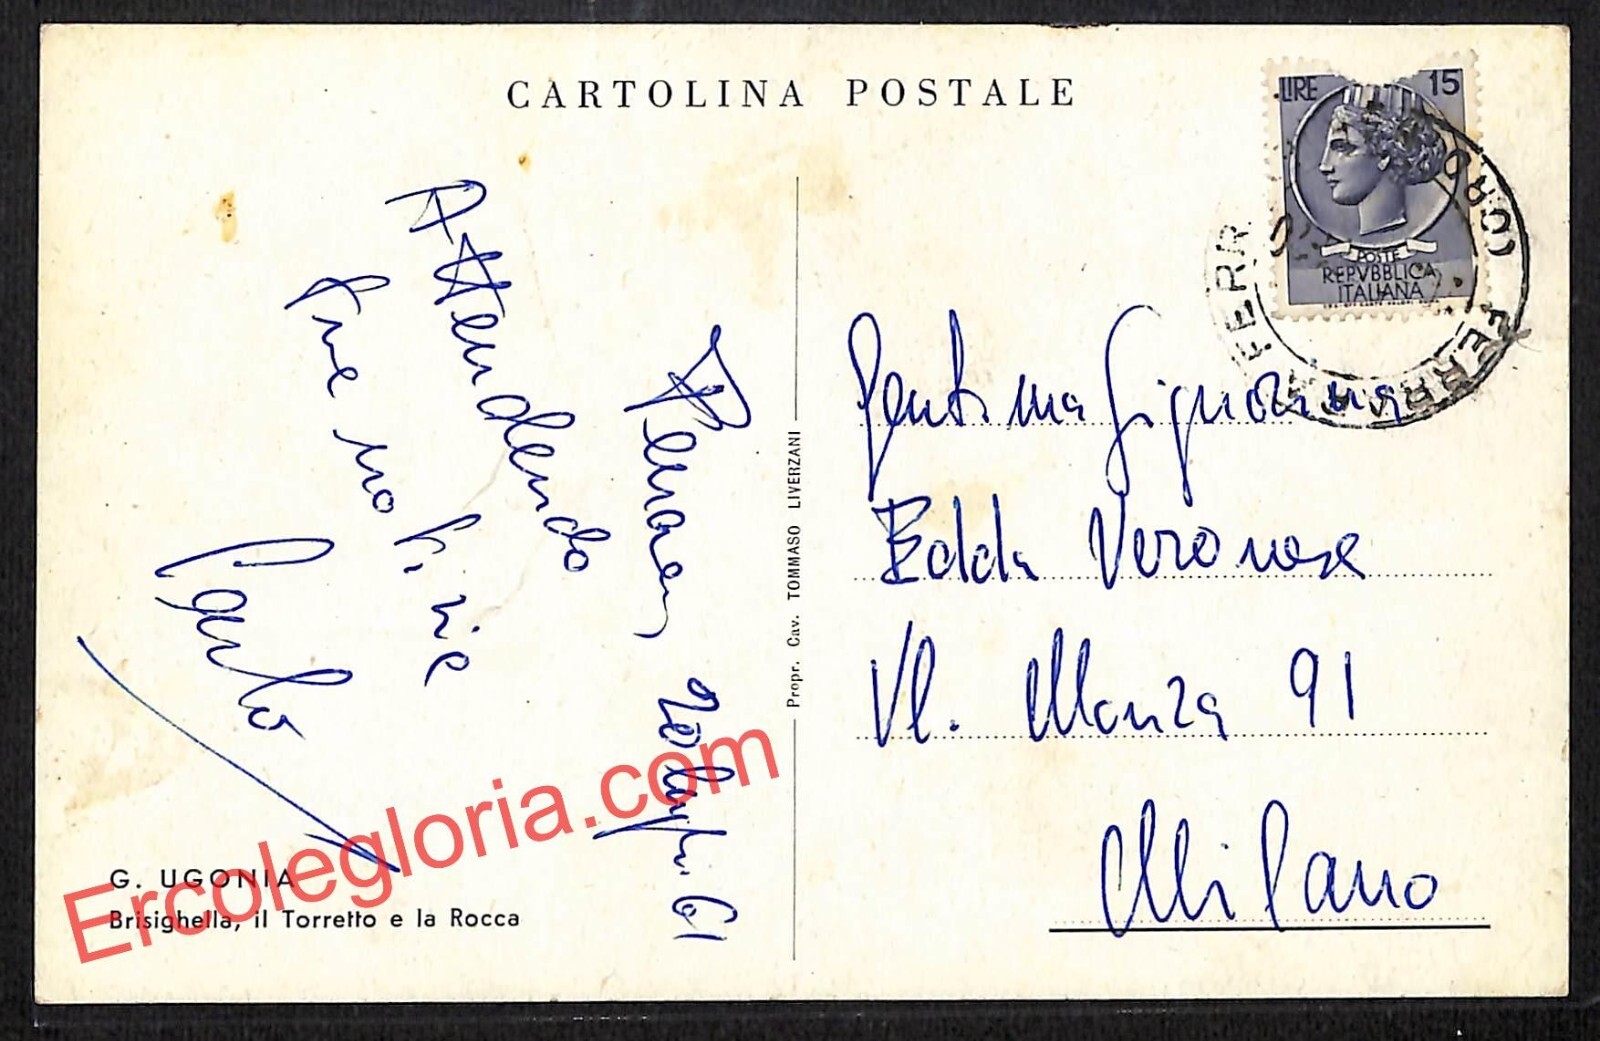 CARTOLINA POSTALE
LIRE 15
POSTE
REPVBBLICA
ITALIANA
FERRARA FERR
Attendendo
tue notizie
Carlo
20 luglio 61
Propr. Cav. TOMMASO LIVERZANI
Gent.ma Signorina
Edda Veronese
Vl. Monza 91
Milano
G. UGONIA
Brisighella, il Torretto e la Rocca
Ercolegloria.com